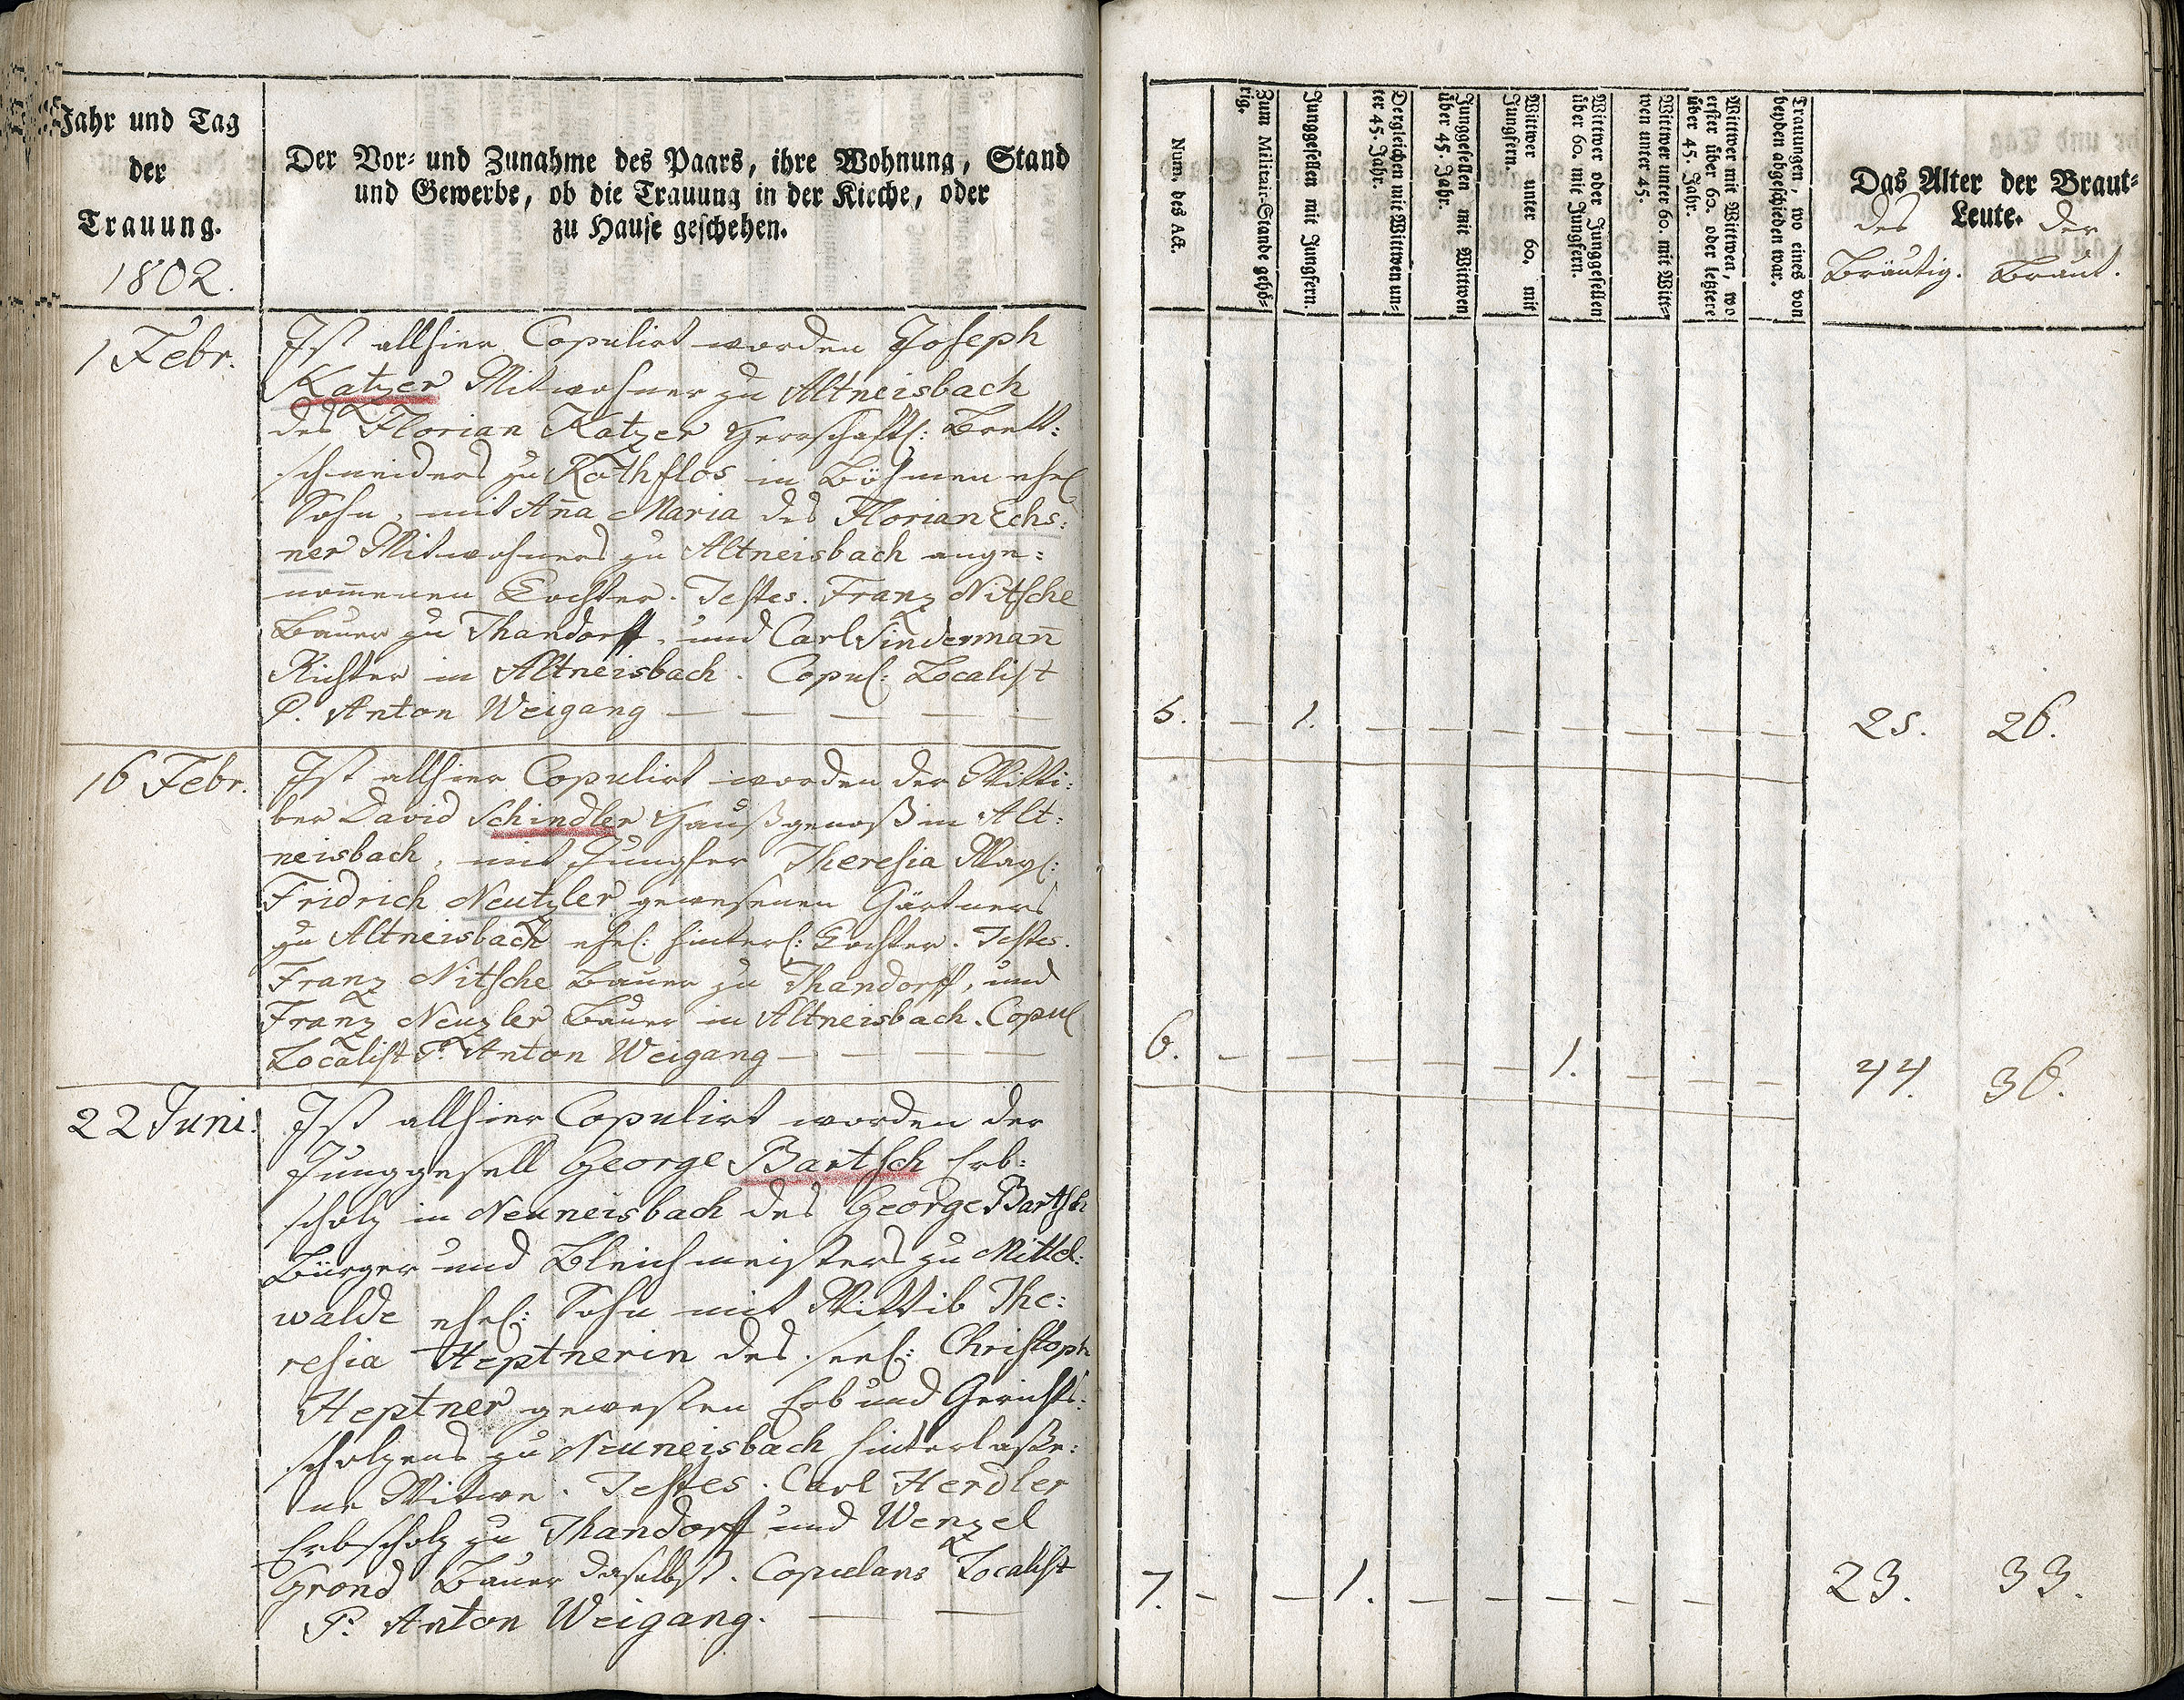 Jahr und Tag
der
Trauung.
1802.
Der Vor- und Zunahme des Paars, ihre Wohnung, Stand
und Gewerbe, ob die Trauung in der Kirche, oder
zu Hause geschehen.
1 Febr.
Ist allhier Copulirt worden Joseph
Katzer Mitwohner zu Altneisbach
des Florian Katzer Herrschaftl: Brett:
schneiders zu Rothflos in Böhmen ehel
Sohn, mit Ana Maria des Florian Echs:
ner Mitwohners zu Altneisbach ange:
nomenen Tochter. Testes. Franz Nitsche
Bauer zu Thandorff, und Carl Sinderman
Richter in Altneisbach. Copul: Localist
P. Anton Weigang — — — — —
16 Febr.
Ist allhier Copulirt worden der Witti:
ber David Schindler Haußgenoß in Alt:
neisbach, mit Jungfer Theresia Weyl:
Fridrich Neutzler gewesenen Gärtners
zu Altneisbach ehel: hinterl: Tochter. Testes.
Franz Nitsche Bauer zu Thandorff, und
Franz Neuzler Bauer in Altneisbach. Copul
Localist P. Anton Weigang — — — —
22 Juni.
Ist allhier Copulirt worden der
Junggesell George Bartsch Erb:
scholz in Neuneisbach des George Bartsch
Bürger und Bleichmeisters zu Mittel:
walde ehel: Sohn mit Wittib The:
resia Heptnerin des seel: Christoph
Heptner gewesten Erb und Gerichts:
scholzens zu Neuneisbach hinterlaße:
ne Witwe. Testes. Carl Herdler
Erbscholz zu Thandorff und Wenzel
Grond Bauer daselbst. Copulans Localist
P. Anton Weigang. — —
Num. des Act.
Zum Militair-Stande gehö-
rig.
Junggesellen mit Jungfern.
Dergleichen mit Wittwen un-
ter 45. Jahr.
Junggesellen mit Wittwen
über 45. Jahr.
Wittwer unter 60. mit
Jungfern.
Wittwer oder Junggesellen
über 60. mit Jungfern.
Wittwer unter 60. mit Witt-
wen unter 45.
Wittwer mit Wittwen, wo
erster über 60. oder letztere
über 45. Jahr.
Trauungen, wo eines von
beyden abgeschieden war.
Das Alter der Braut-
Leute.
des
Bräutig.
der
Braut.
5. — 1. — — — — — — — 25. 26.
6. — — — — — 1. — — — 44. 36.
7. — — 1. — — — — — 23. 33.